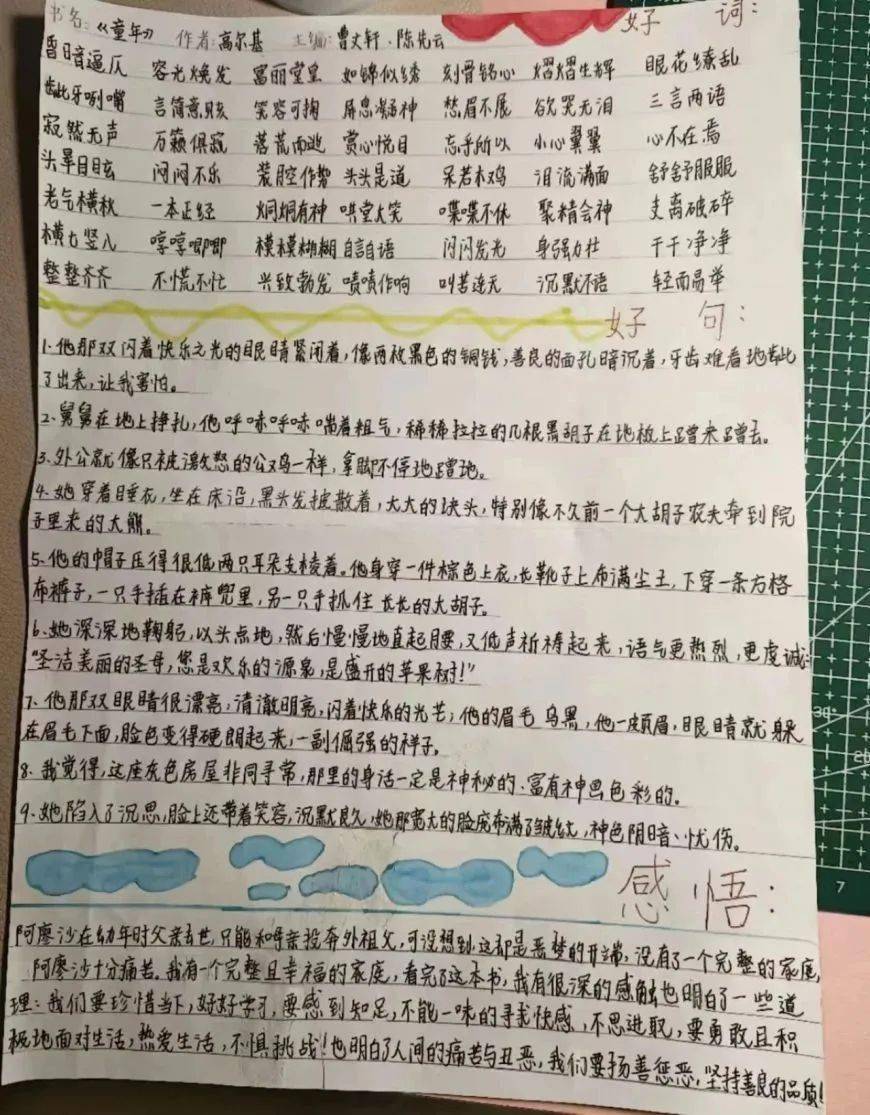 书名:《童年》 作者:高尔基 主编:曹文轩·陈先云
好 词:
昏暗逼仄 容光焕发 富丽堂皇 如锦似绣 刻骨铭心 熠熠生辉 眼花缭乱
龇牙咧嘴 言简意赅 笑容可掬 屏息凝神 愁眉不展 欲哭无泪 三言两语
寂然无声 万籁俱寂 落荒而逃 赏心悦目 忘乎所以 小心翼翼 心不在焉
头晕目眩 闷闷不乐 装腔作势 头头是道 呆若木鸡 泪流满面 舒舒服服
老气横秋 一本正经 炯炯有神 哄堂大笑 喋喋不休 聚精会神 支离破碎
横七竖八 哼哼唧唧 模模糊糊 自言自语 闪闪发光 身强力壮 干干净净
整整齐齐 不慌不忙 兴致勃发 啧啧作响 叫苦连天 沉默不语 轻而易举
好 句:
1.他那双闪着快乐之光的眼睛紧闭着,像两枚黑色的铜钱,善良的面孔暗沉着,牙齿难看地龇
了出来,让我害怕。
2.舅舅在地上挣扎,他呼哧呼哧喘着粗气,稀稀拉拉的几根黑胡子在地板上蹭来蹭去。
3.外公就像只被激怒的公鸡一样,拿脚不停地蹭地。
4.她穿着睡衣,坐在床沿,黑头发披散着,大大的块头,特别像不久前一个大胡子农夫牵到院
子里来的大熊。
5.他的帽子压得很低两只耳朵支棱着。他身穿一件棕色上衣,长靴子上布满尘土,下穿一条方格
布裤子,一只手插在裤兜里,另一只手抓住长长的大胡子。
6.她深深地鞠躬,以头点地,然后慢慢地直起腰,又低声祈祷起来,语气更热烈,更虔诚:
“圣洁美丽的圣母,您是欢乐的源泉,是盛开的苹果树!”
7.他那双眼睛很漂亮,清澈明亮,闪着快乐的光芒,他的眉毛乌黑,他一皱眉,眼睛就躲
在眉毛下面,脸色变得硬朗起来,一副倔强的样子。
8.我觉得,这座灰色房屋非同寻常,那里的身活一定是神秘的、富有神色彩的。
9.她陷入了沉思,脸上还带着笑容,沉默良久,她那宽大的脸庞布满了皱纹,神色阴暗、忧伤。
感 悟:
阿廖沙在幼年时父亲去世,只能和母亲投奔外祖父,可没想到这却是恶梦的开端,没有了一个完整的家庭,
阿廖沙十分痛苦。我有一个完整且幸福的家庭,看完了这本书,我有很深的感触也明白了一些道
理:我们要珍惜当下,好好学习,要感到知足,不能一味的寻找快感,不思进取,要勇敢且积
极地面对生活,热爱生活,不惧挑战!也明白了人间的痛苦与丑恶,我们要扬善惩恶,坚持善良的品质!
30°
7